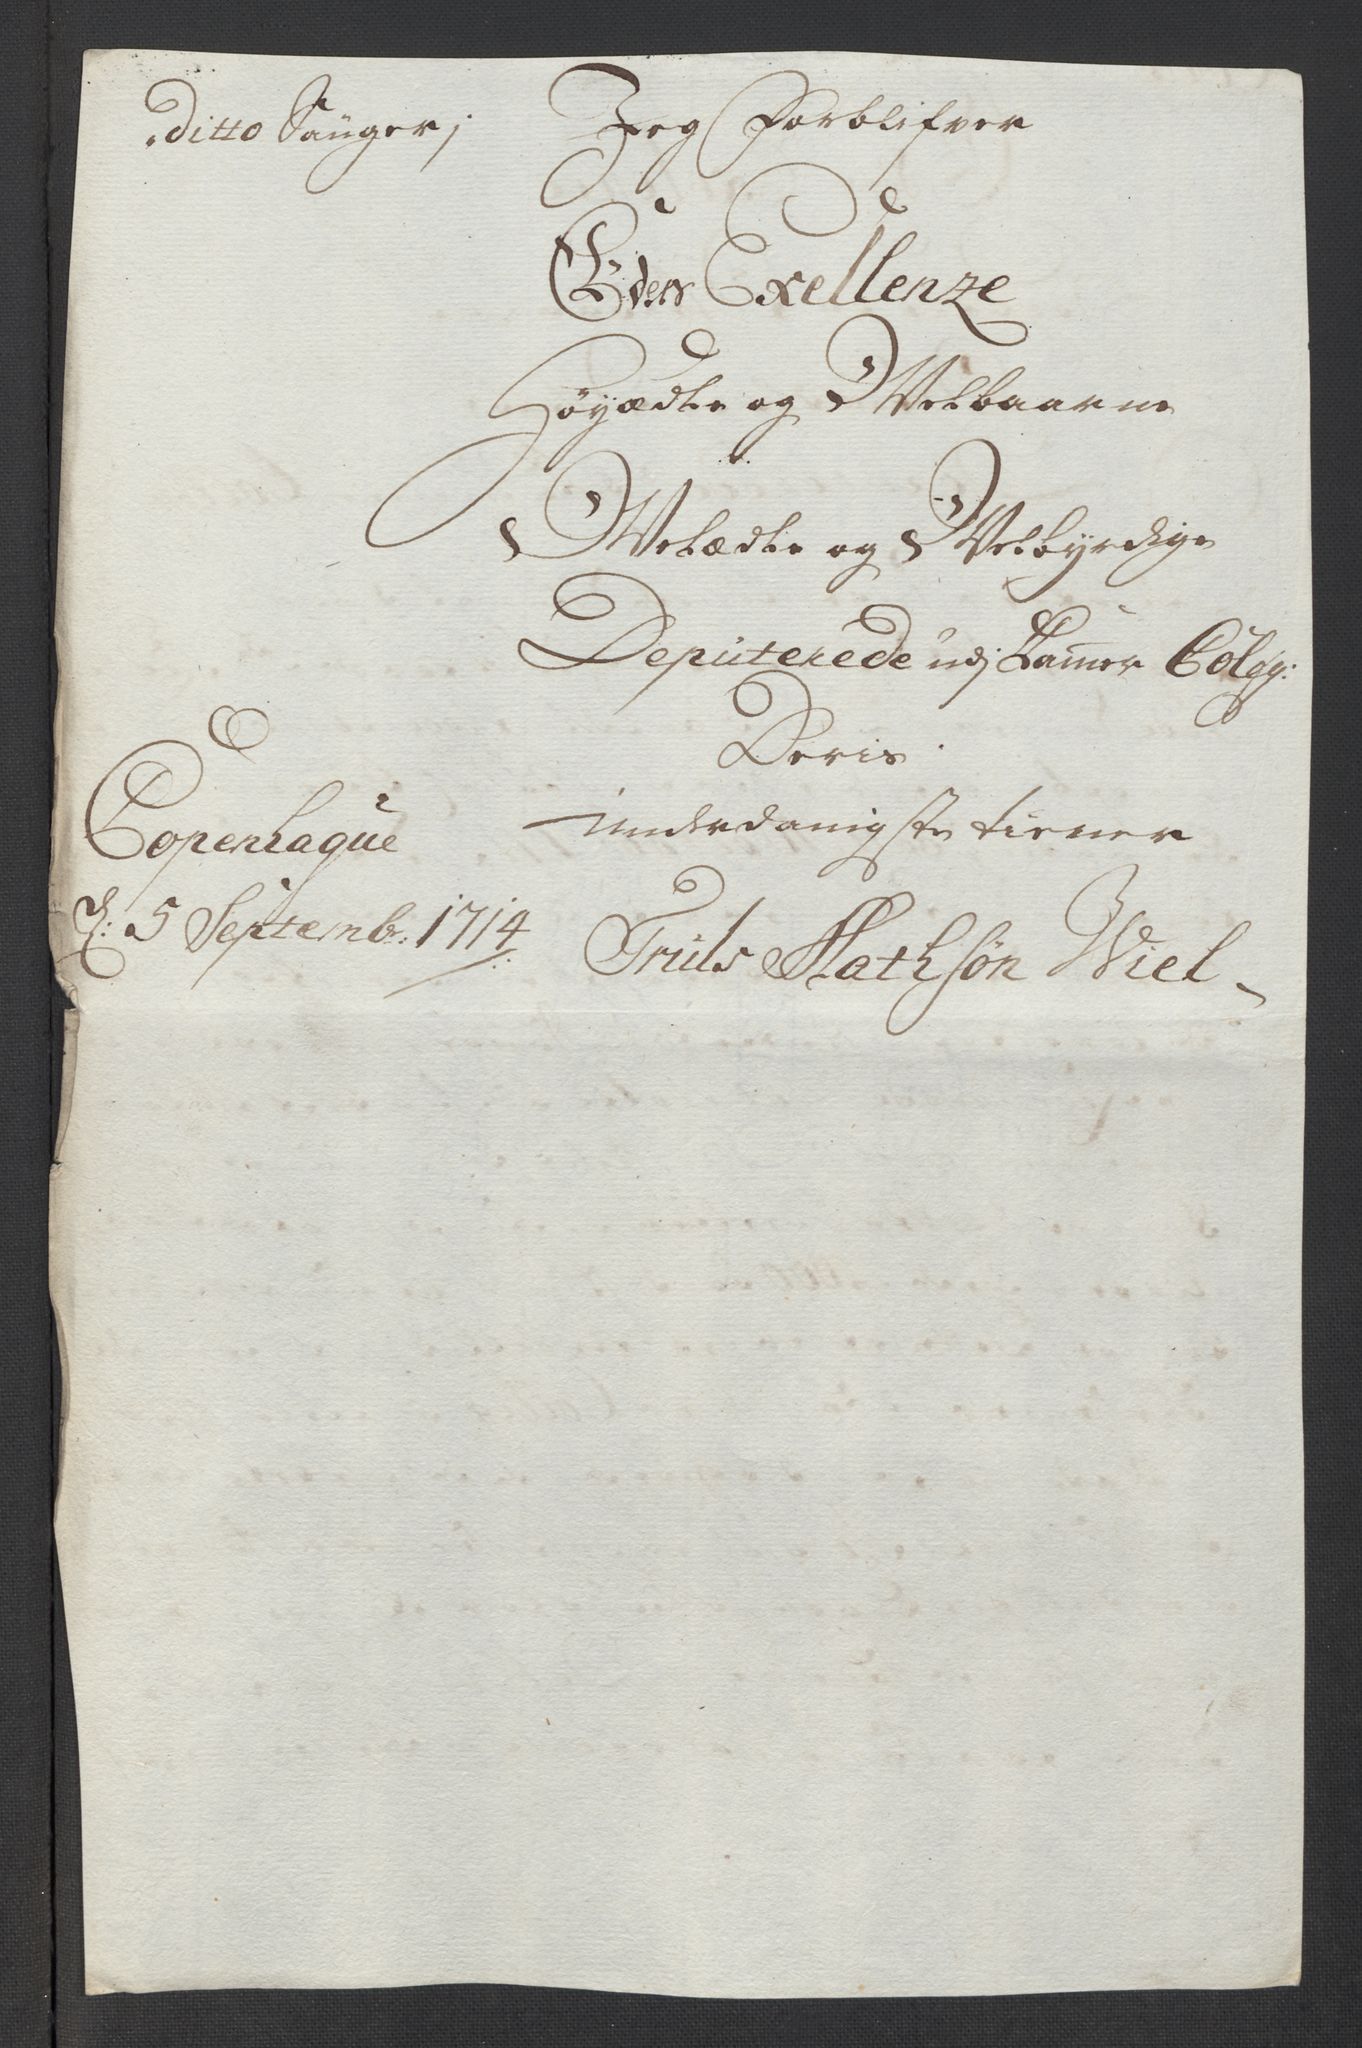 ditto Sauger; Jeg Forblifver
Eders Exellenze
Höyædle og Velbaarne
Velædle og Velbyrdige
Deputerede udj Cammer Colg:
Deris
underdanigste tiener
Copenhague
d: 5 Septemb: 1714 Truls Mathsön Wiel